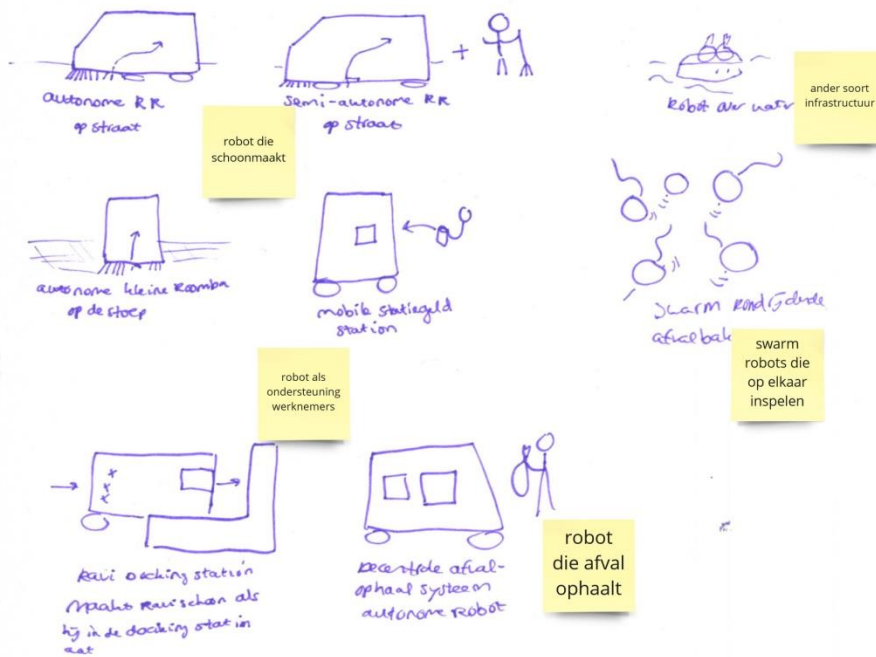 autonome RR
op straat
semi-autonome RR
op straat
+
robot die
schoonmaakt
Robot over water
ander soort
infrastructuur
autonome kleine Roomba
op de stoep
mobile statiegeld
station
swarm rondrijdende
afvalbak
swarm
robots die
op elkaar
inspelen
robot als
ondersteuning
werknemers
Ravi docking station
maakt Ravi schoon als
hij in de docking station
Decentrale afval-
ophaal systeem
autonome robot
robot
die afval
ophaalt